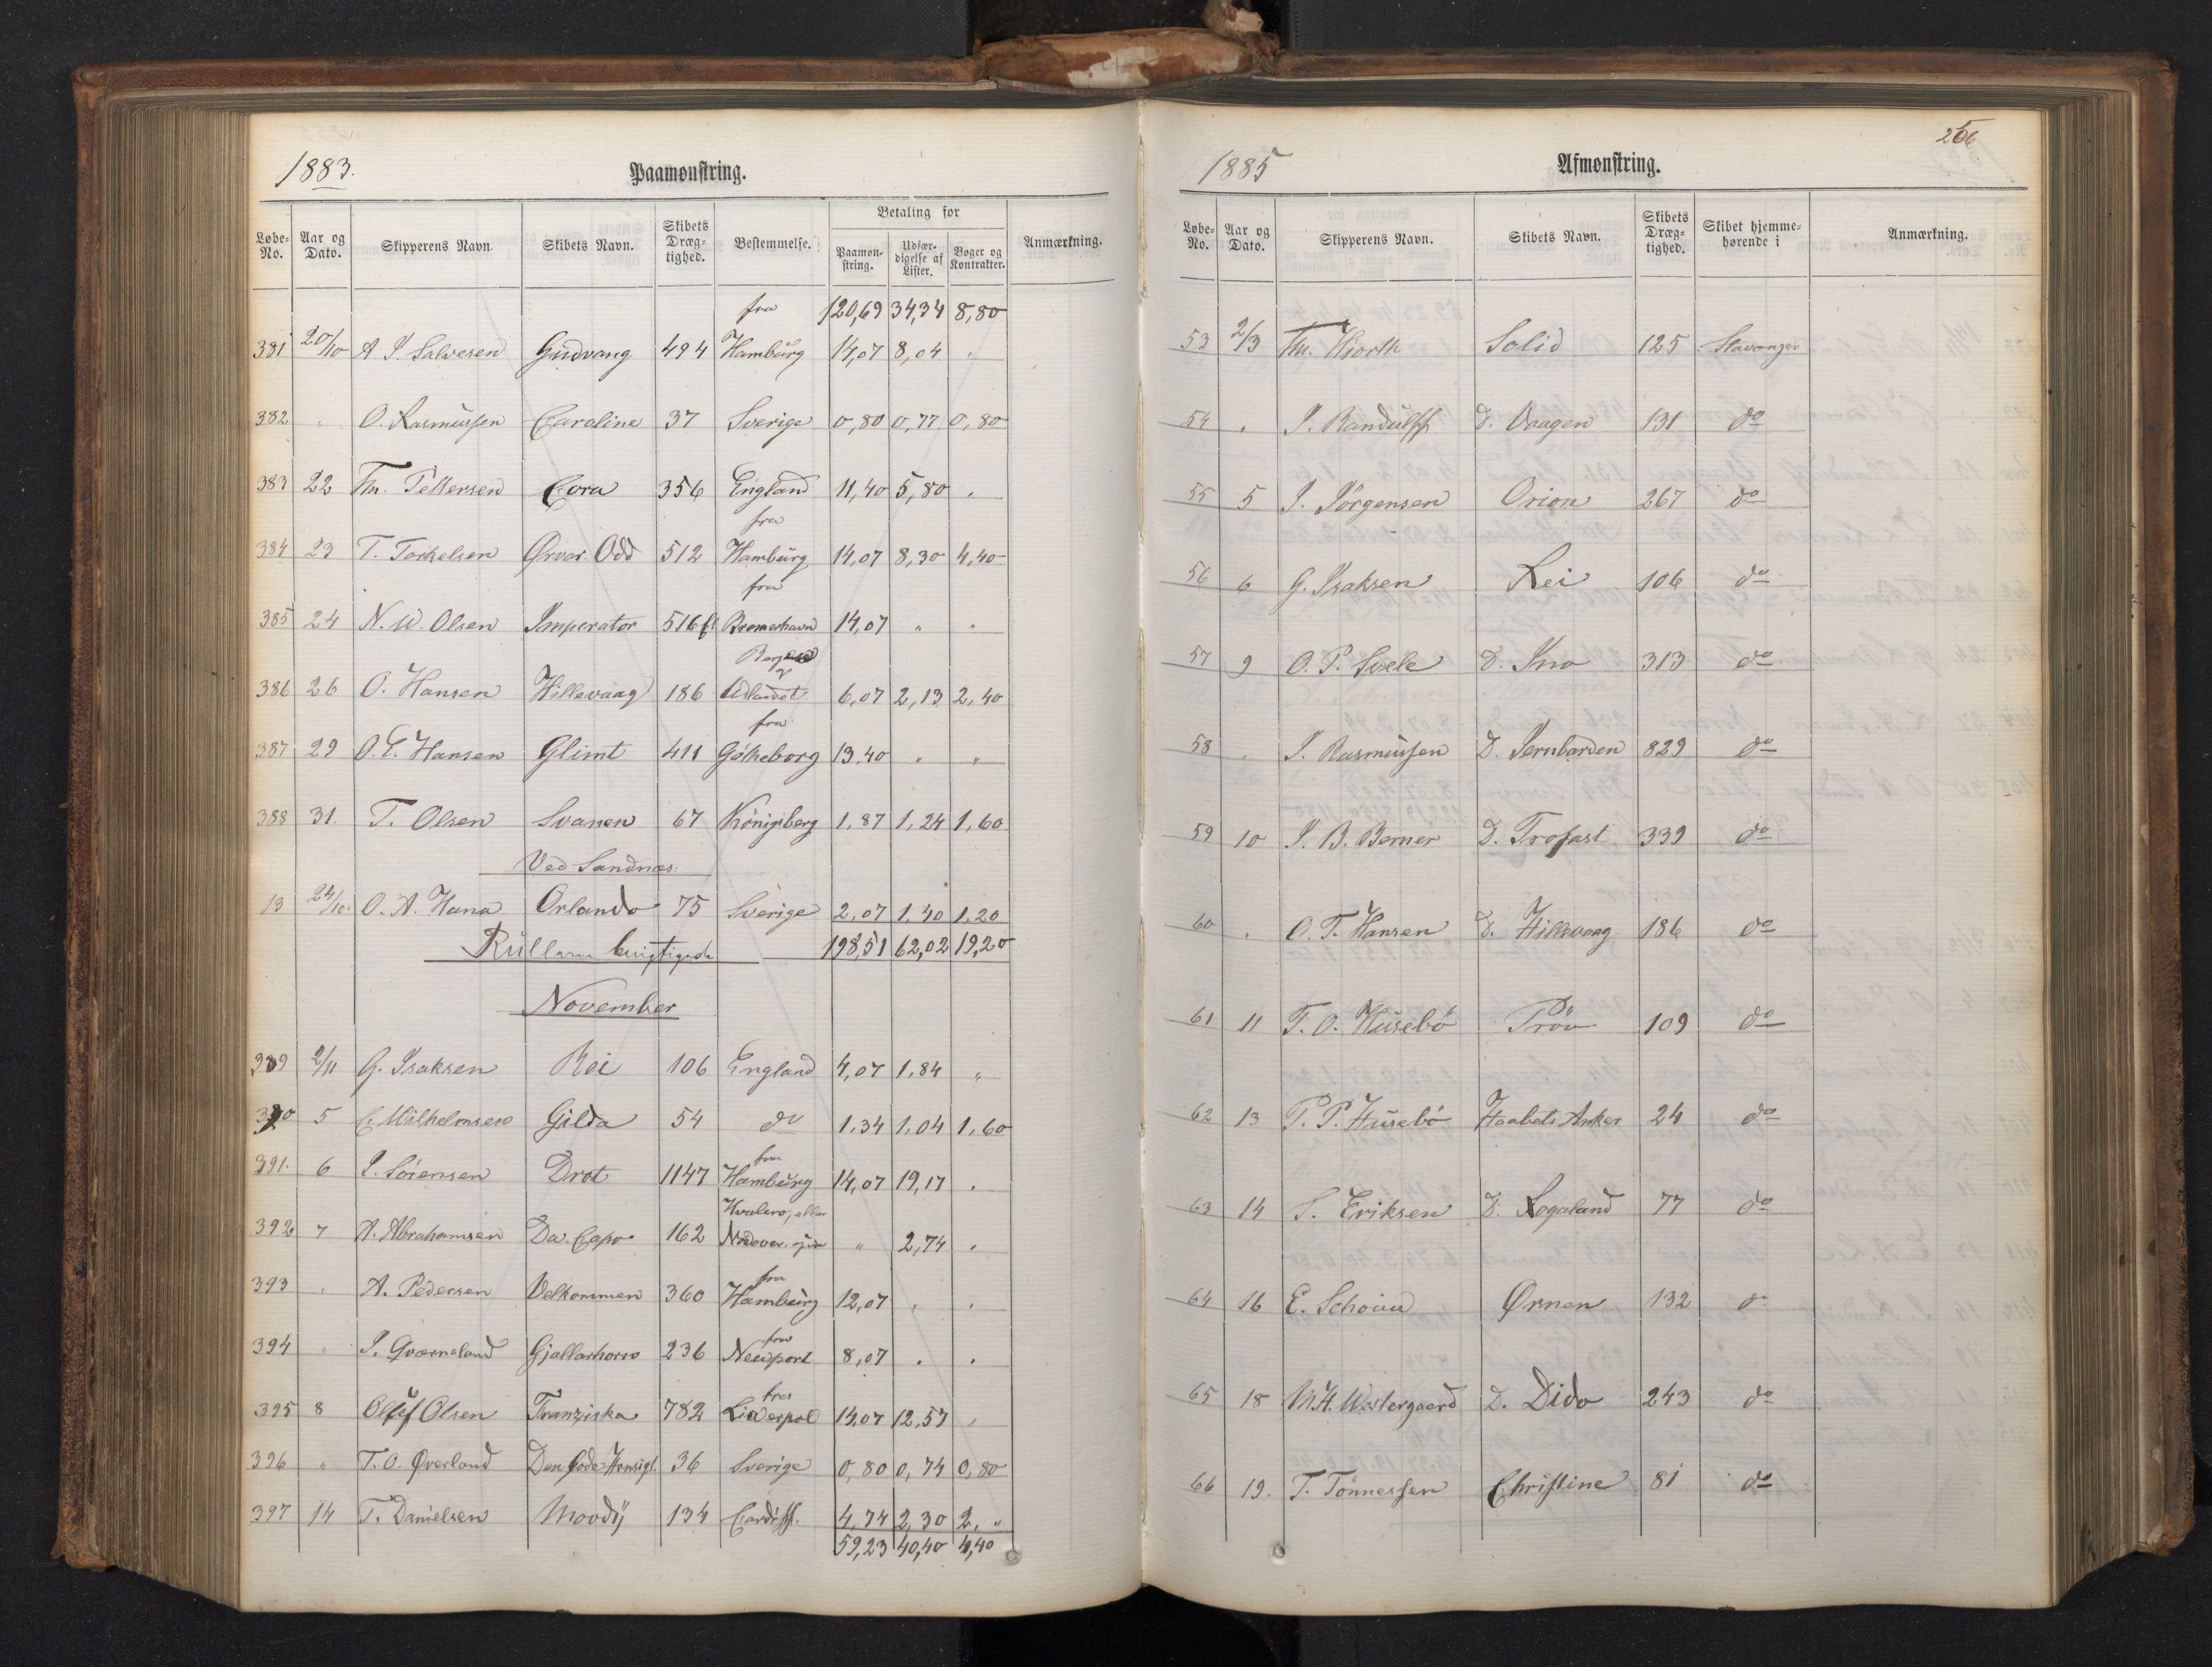 1883.
Paamønstring.
Løbe-No. Aar og Dato. Skipperens Navn. Skibets Navn. Skibets Drægtighed. Bestemmelse. Betaling for Paamønstring. Udfærdigelse af Lister. Bøger og Kontrakter. Anmærkning.
fra 120,69 34,34 8,80
381 20/10 A. I. Salvesen Gudvang 494 Hamburg 14,07 8,04 "
382 " O. Rasmussen Caroline 37 Sverige 0,80 0,77 0,80
383 22 Th. Tellersen Cora 356 England 11,40 5,80 "
fra
384 23 T. Torkelsen Ørvar Odd 512 Hamburg 14,07 8,30 4,40
fra
385 24 N. W. Olsen Imperator 516 Bremerhavn 14,07 " "
386 26 O. Hansen Hillevaag 186 Udlandet 6,07 2,13 2,40
fra
387 29 O. T. Hansen Glimt 411 Gøtheborg 13.40 " "
388 31. T. Olsen Svanen 67 Königsberg 1,87 1,24 1,60
Ved Sandnæs:
13 24/10. O. A. Hana Orlando 75 Sverige 2,07 1,40 1,20
198,51 62,02 19,20
November
389 2/11 G. Isaksen Rei 106 England 4,07 1,84 "
390 5 C. Wilhelmsen Gilda 54 do 1,34 1,04 1,60
fra
391. 6 I. Sörensen Drot 1147 Hamburg 14,07 19,17 "
Hvalerø, eller
392 7 A. Abrahamsen Da. Capo 162 " 2,74 "
fra
393 " A. Pedersen Velkommen 360 Hamburg 12,07 " "
fra
394 " I. Qværneland Gjallarhorn 236 Newport 8,07 " "
fra
395 8 Olsen Franziska 782 Liverpol 14,07 12,57 "
396 " T. O. Øverland Den Gode Hensigt. 36 Sverige 0,80 0,74 0,80
397 14 T. Danielsen Moody 134 Cardiff. 4,74 2,30 2, "
59,23 40,40 4,40
1885
Afmønstring.
206
Løbe-No. Aar og Dato. Skipperens Navn. Skibets Navn. Skibets Drægtighed. Skibet hjemmehørende i Anmærkning.
53 2/3 Th. Hjorth Solid 125 Stavanger
54 " I. Randulff D. Vaagen 131 do
55 5 I. Jörgensen Orion 267 do
56 6 G. Isaksen Rei 106 do
57 9 O. P. Svele D. Ino 313 do
58 " I. Rasmussen D. Jernbarden 829 do
59 10 I. B. Berner D. Trofast 339 do
60 " O. T. Hansen D. Hillevaag 186 do
61 11 T. O. Husebö Pröv 109 do
62 13 T. P. Husebö Haabets Anker 24 do
63 14 S. Eriksen D. Rogaland 77 do
64 16 E. Ørnen 132 do
65 18 M. H. Westergaard D. Dido 243 do
66 19. T. Tönnessen Christine 81 do